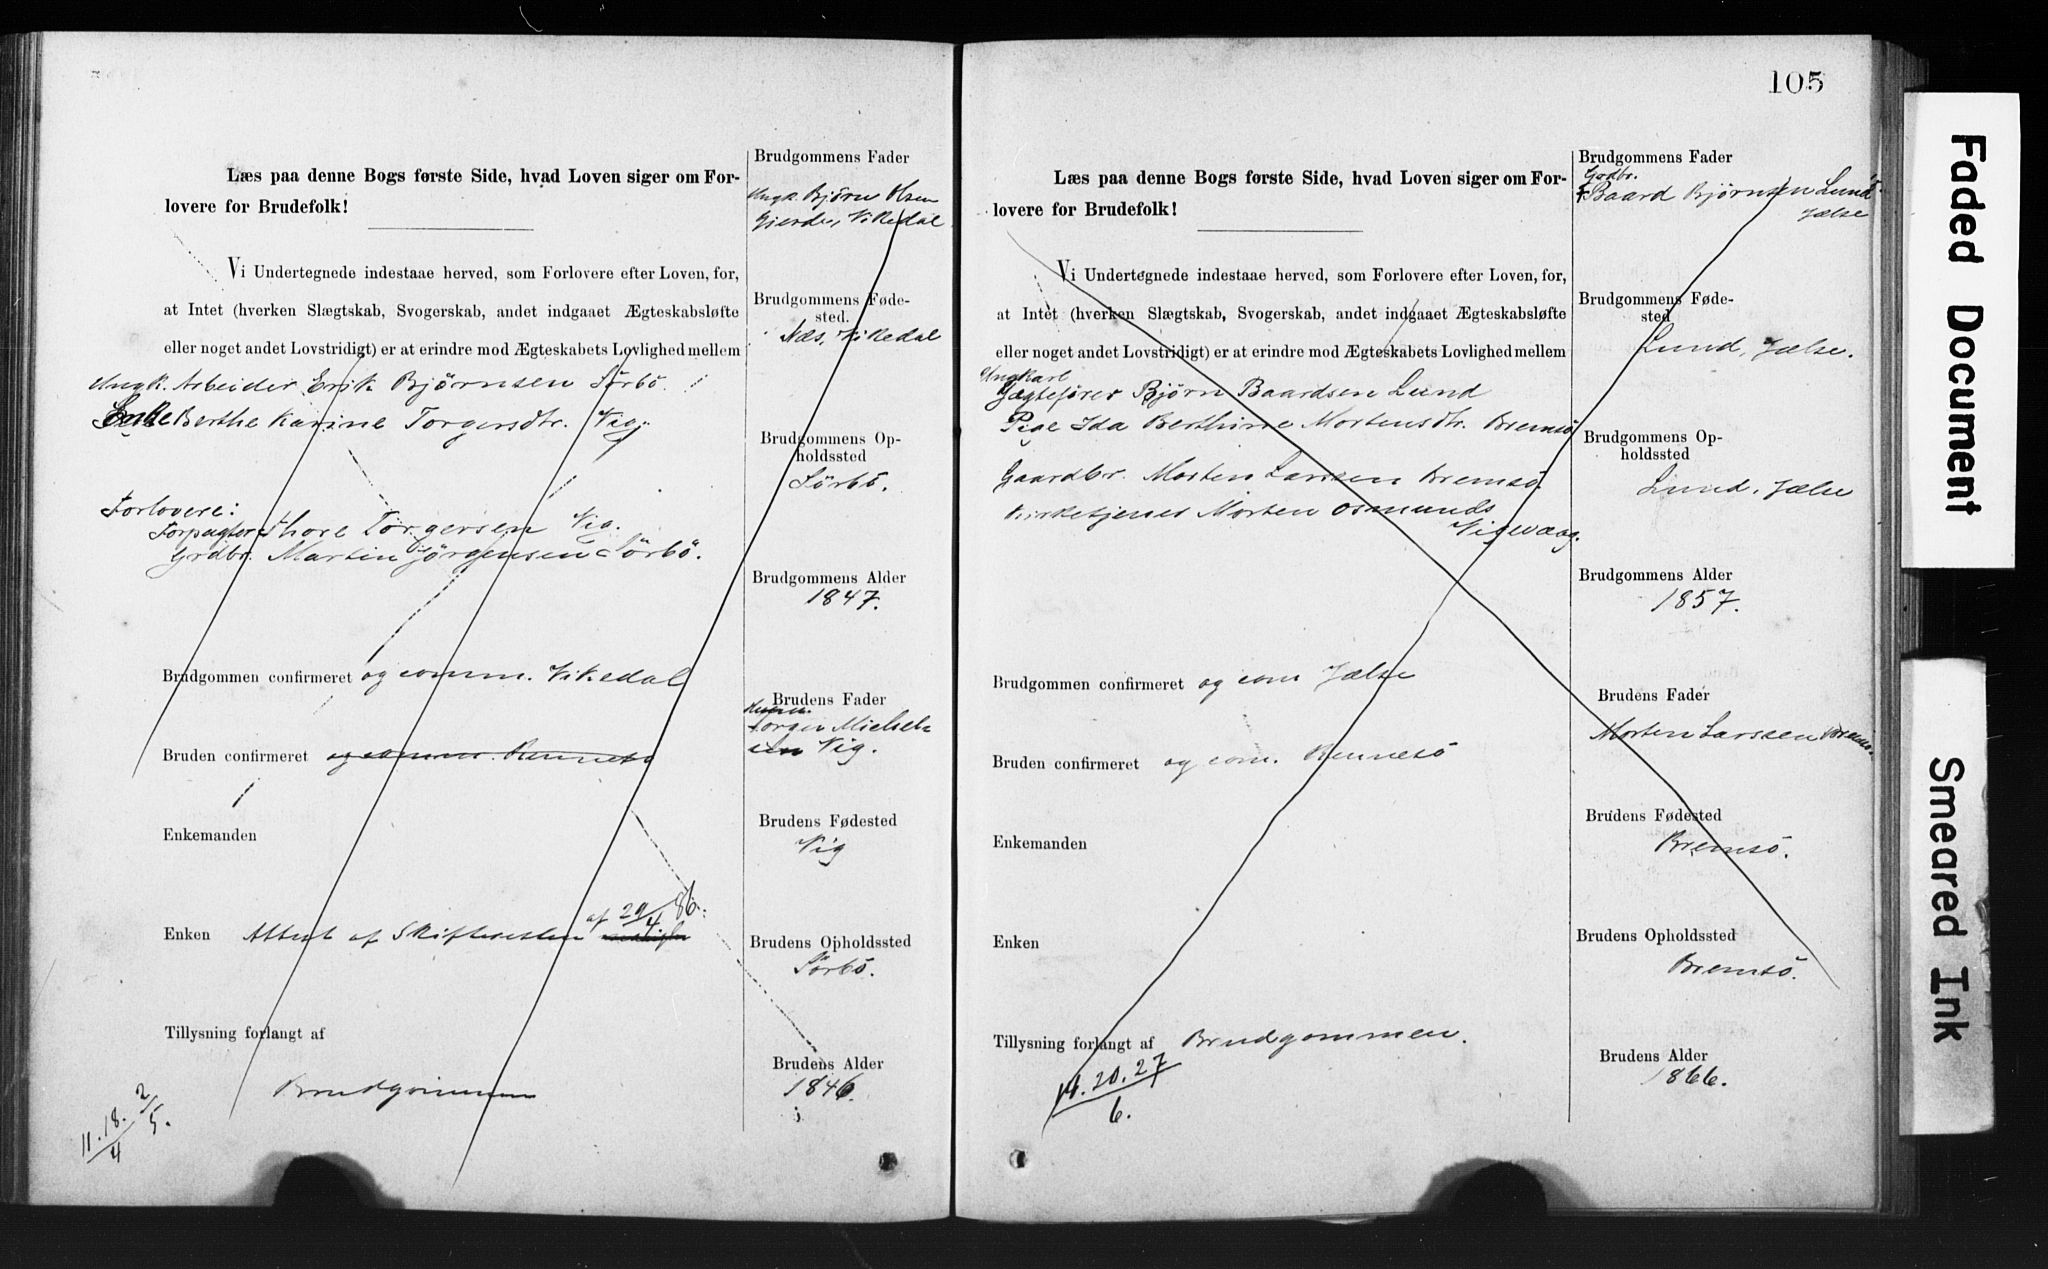 Læs paa denne Bogs første Side, hvad Loven siger om For-
lovere for Brudefolk!
Vi Undertegnede indestaae herved, som Forlovere efter Loven, for,
at Intet (hverken Slægtskab, Svogerskab, andet indgaaet Ægteskabsløfte
eller noget andet Lovstridigt) er at erindre mod Ægteskabets Lovlighed mellem
Ungk. Arbeider Erik Bjørnsen Sørbö.
Enke Berthe Karine Torgersdtr. Vig
Forlovere:
Forpagter Thore Torgersen Vig.
Grdbr. Martin Jörgensen Sörbö.
Brudgommen confirmeret og comm. Vikedal
Bruden confirmeret og comm. Rennesö
Enkemanden
Enken Attest af Skifteretten af 29/4 86.
Tillysning forlangt af
Brudgommen
11. 18./4 2/5.
Brudgommens Fader
Ungk. Björn Olsen
Gjerde, Vikedal
Brudgommens Føde-
sted.
Næs, Vikedal
Brudgommens Op-
holdssted
Sörbö.
Brudgommens Alder
1847.
Brudens Fader
Vig.
Brudens Fødested
Vig
Brudens Opholdssted
Sörbö.
Brudens Alder
1846.
105
Læs paa denne Bogs første Side, hvad Loven siger om For-
lovere for Brudefolk!
Vi Undertegnede indestaae herved, som Forlovere efter Loven, for,
at Intet (hverken Slægtskab, Svogerskab, andet indgaaet Ægteskabsløfte
eller noget andet Lovstridigt) er at erindre mod Ægteskabets Lovlighed mellem
Ungkarl
Jægtefører Bjørn Baardsen Lund
Pige Ida Berthine Mortensdtr. Bremsö
Gaardbr. Morten Larssen Bremsö.
Kirketjener Morten Osmunds
Vigevaag.
Brudgommen confirmeret og com Jælse
Bruden confirmeret og com. Rennesö
Enkemanden
Enken
Tillysning forlangt af Brudgommen.
14. 20. 27/6.
Brudgommens Fader
Grdbr.
Baard Bjørnsen Lund
Jælse
Brudgommens Føde-
sted
Lund, Jælse.
Brudgommens Op-
holdssted
Lund, Jælse
Brudgommens Alder
1857.
Brudens Fader
Morten Larssen Bremsö.
Brudens Fødested
Bremsö.
Brudens Opholdssted
Bremsö.
Brudens Alder
1866.
Faded Document
Smeared Ink